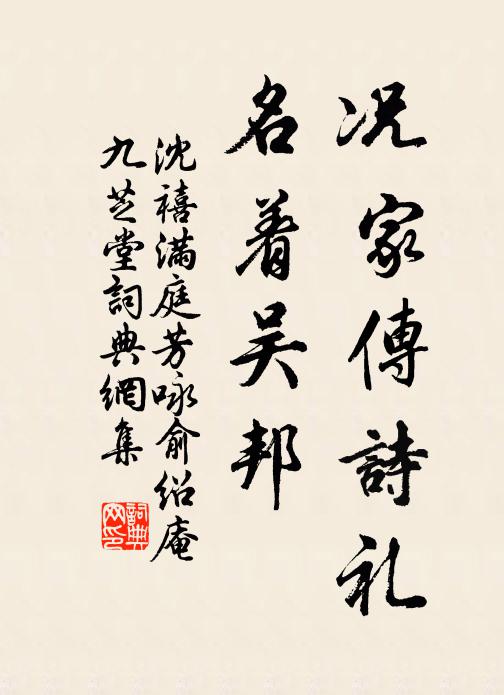 况家傳詩礼
名着吴邦
沈禧满庭芳咏俞绍庵
九芝堂詞典網集
詞典网印